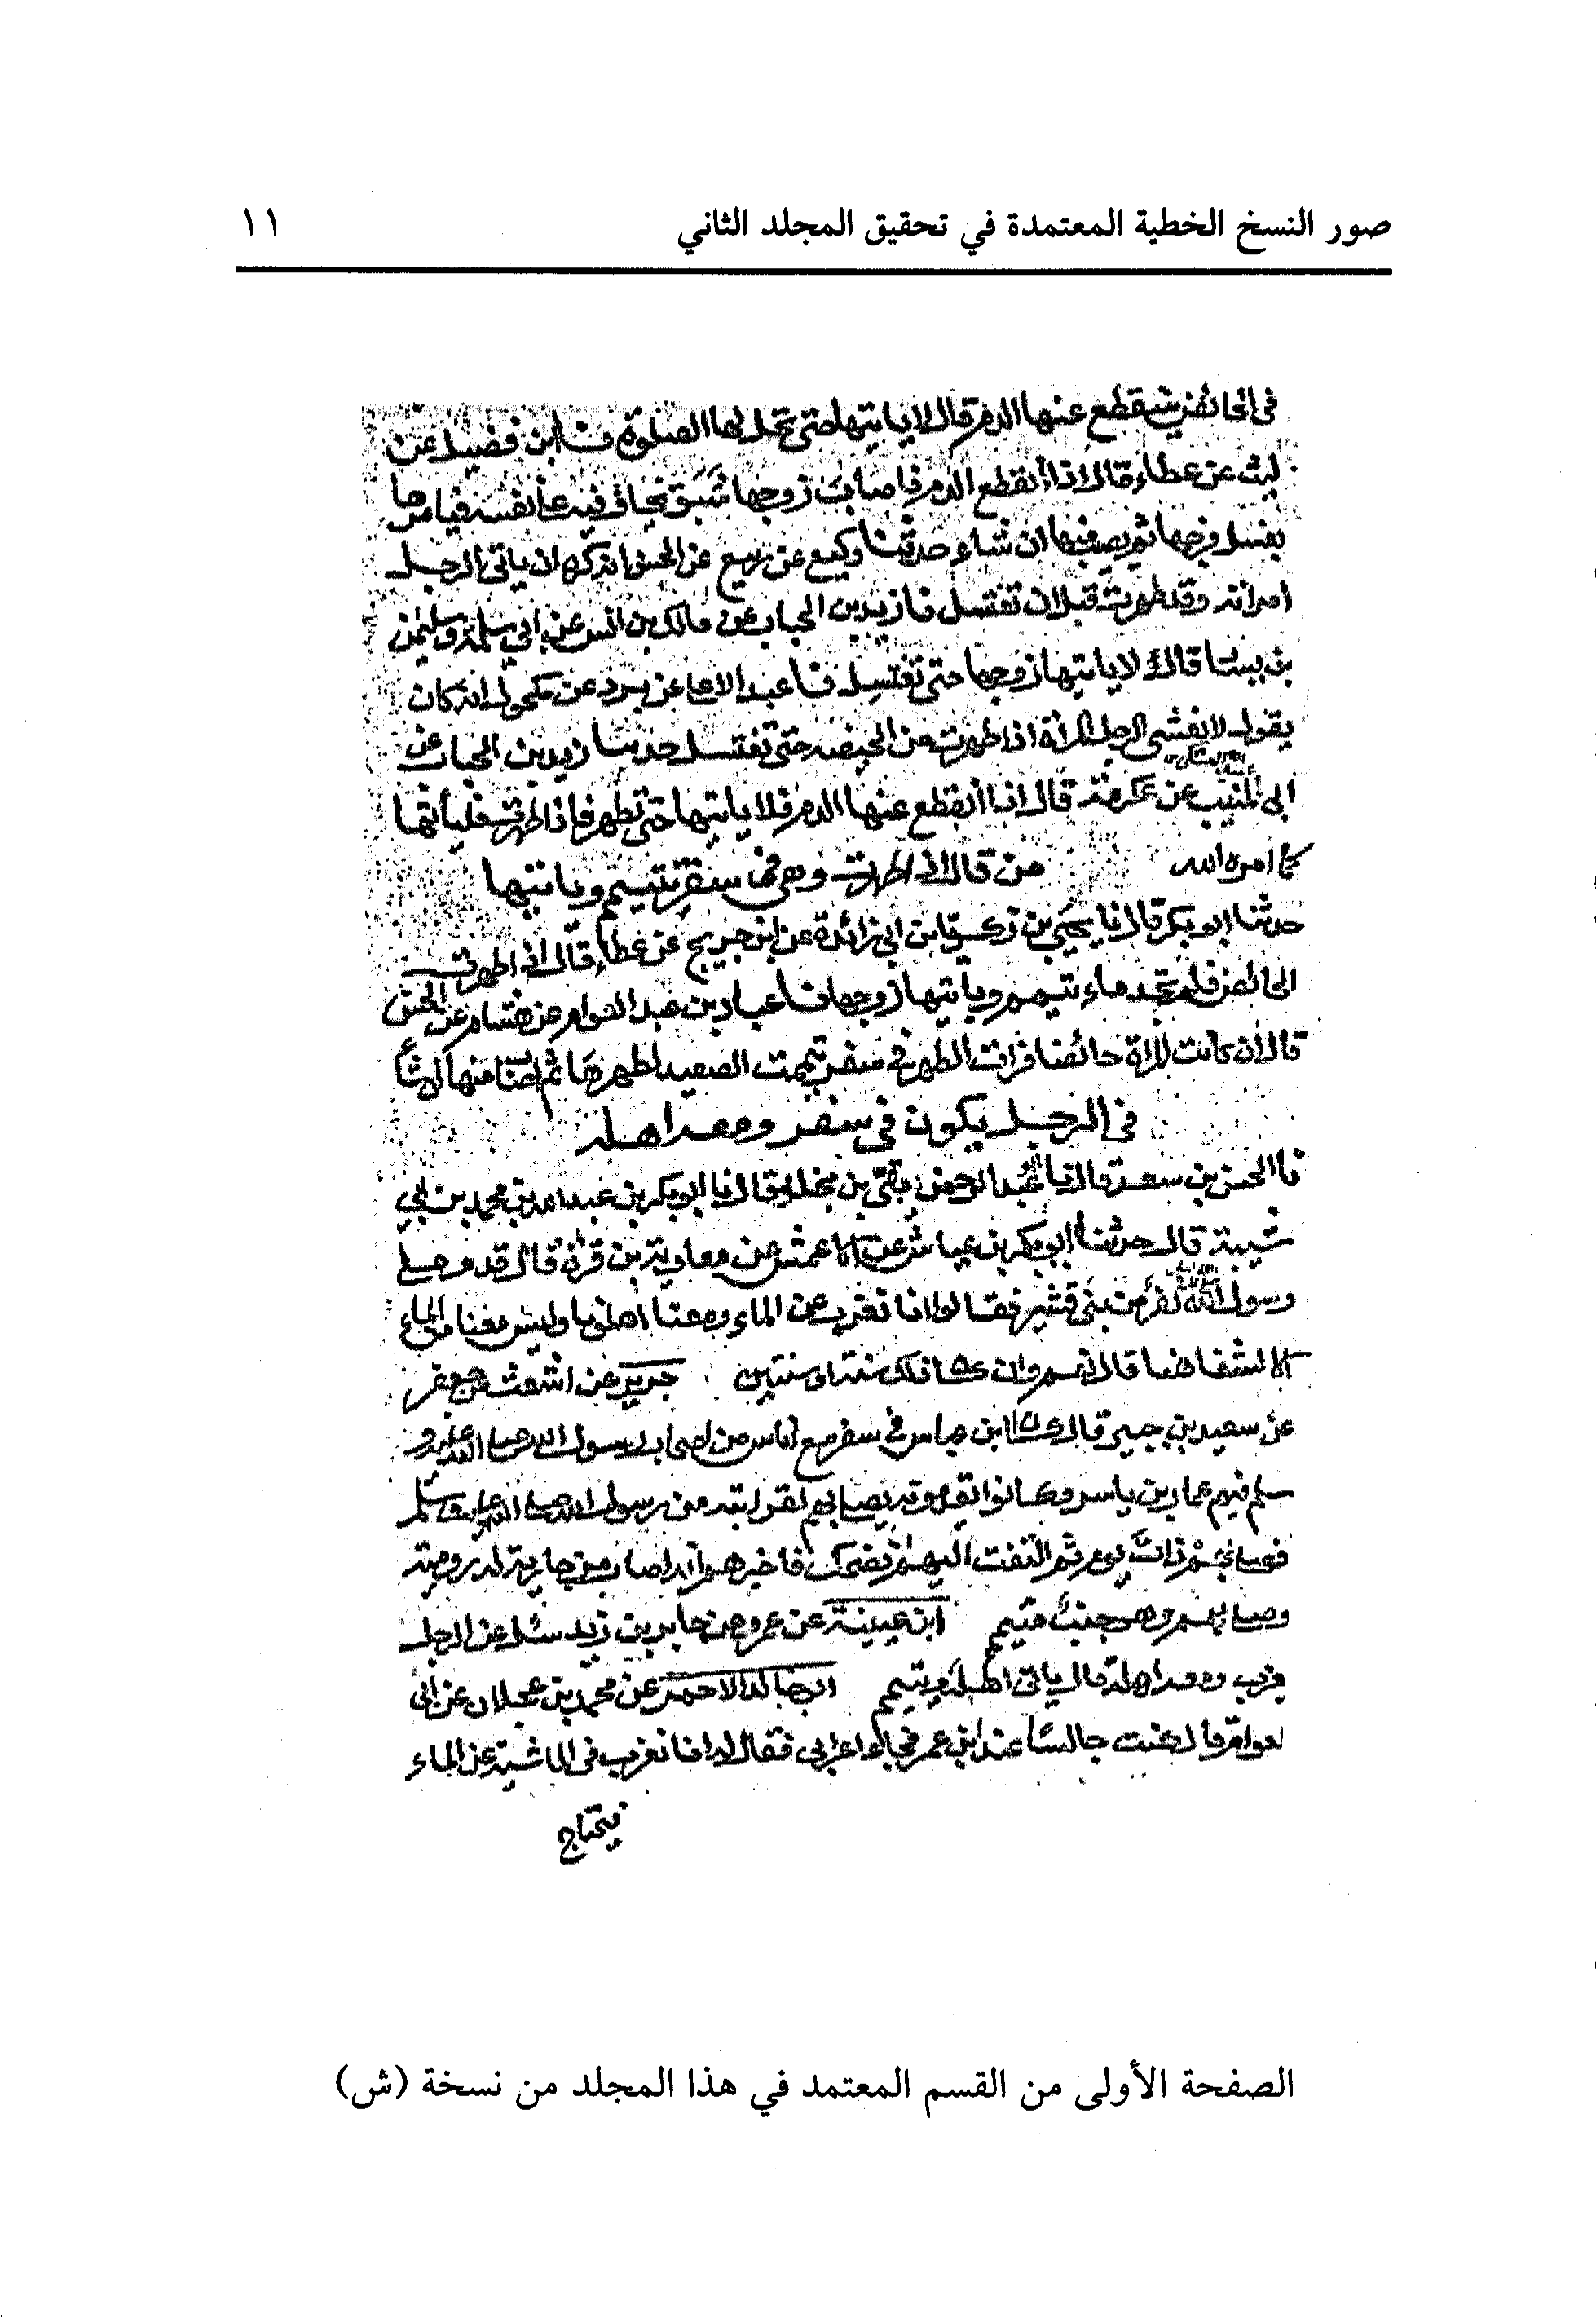 صور النسخ الخطية المعتمدة في تحقيق المجلد الثاني ١١
في الحائض ينقطع عنها الدم قال لا ياتيها حتى تحل لها الصلوة نا ابن فضيل عن
ليث عن عطاء قال اذا انقطع الدم فاصاب زوجها شبق يخاف فيه على نفسه فليامرها
بغسل فرجها ثم يصيب منها ان شاء حدثنا وكيع عن ربيع عن الحسن انه كره ان ياتي الرجل
امراته وقد طهرت قبل ان تغتسل نا زيد بن الحباب عن مالك بن انس عن ابي سلمة وسليمن
بن يسار قالا لا ياتيها زوجها حتى تغتسل نا عبد الاعلى عن برد عن مكحول انه كان
يقول لا يغشى الرجل المرأة اذا طهرت من الحيضه حتى تغتسل حدثنا زيد بن الحباب عن
ابي المنيب عن عكرمة قال اذا انقطع عنها الدم فلا ياتيها حتى تطهر فاذا طهرت فليأتها
كما امره الله من قال اذا طهرت وهي في سفر تتيمم وياتيها
حدثنا ابو بكر قال نا يحيى بن زكريا بن ابي زائدة عن ابن جريج عن عطاء قال اذا طهرت
الحائض فلم تجد ماء تتيمم وياتيها زوجها نا عباد بن العوام عن هشام عن الحسن
قال ان كانت المراة حائضا فرات الطهر في سفر تيممت الصعيد لطهرها ثم اصاب منها ان شاء
في الرجل يكون في سفر ومعه اهله
نا الحسن بن سعد قال نا ابو عبد الرحمن بقي بن مخلد قال نا ابو بكر بن عبد الله بن محمد بن ابي
شيبة قال حدثنا ابو بكر بن عياش عن الاعمش عن معاوية بن قرة قال قدم على
رسول الله ﷺ نفر من بني قشير فقالوا انا نعزب عن الماء ومعنا اهلونا وليس معنا من الماء
الا لشفاهنا قال نعم وان كان ذلك سنة او سنتين جرير عن اشعث عن جعفر
عن سعيد بن جبير قال كان ابن عباس في سفر مع اناس من اصحاب رسول الله صلى الله عليه و
سلم فيهم عمار بن ياسر وكانوا يقدمونه يصلي بهم لقرابته من رسول الله صلى الله عليه وسلم
فصلى بهم ذات يوم ثم التفت اليهم فضحك فاخبرهم انه اصاب من جارية له رومية
وصلى بهم وهو جنب متيمم ابن عيينة عن عمرو عن جابر بن زيد سئل عن الرجل
يعزب ومعه اهله قال ياتي اهله ويتيمم ابو خالد الاحمر عن محمد بن عجلان عن ابي
العوام قال كنت جالسا عند ابن عمر فجاء اعرابي فقال له انا نعزب في الماشية عن الماء
فيحتاج
الصفحة الأولى من القسم المعتمد في هذا المجلد من نسخة (ش)